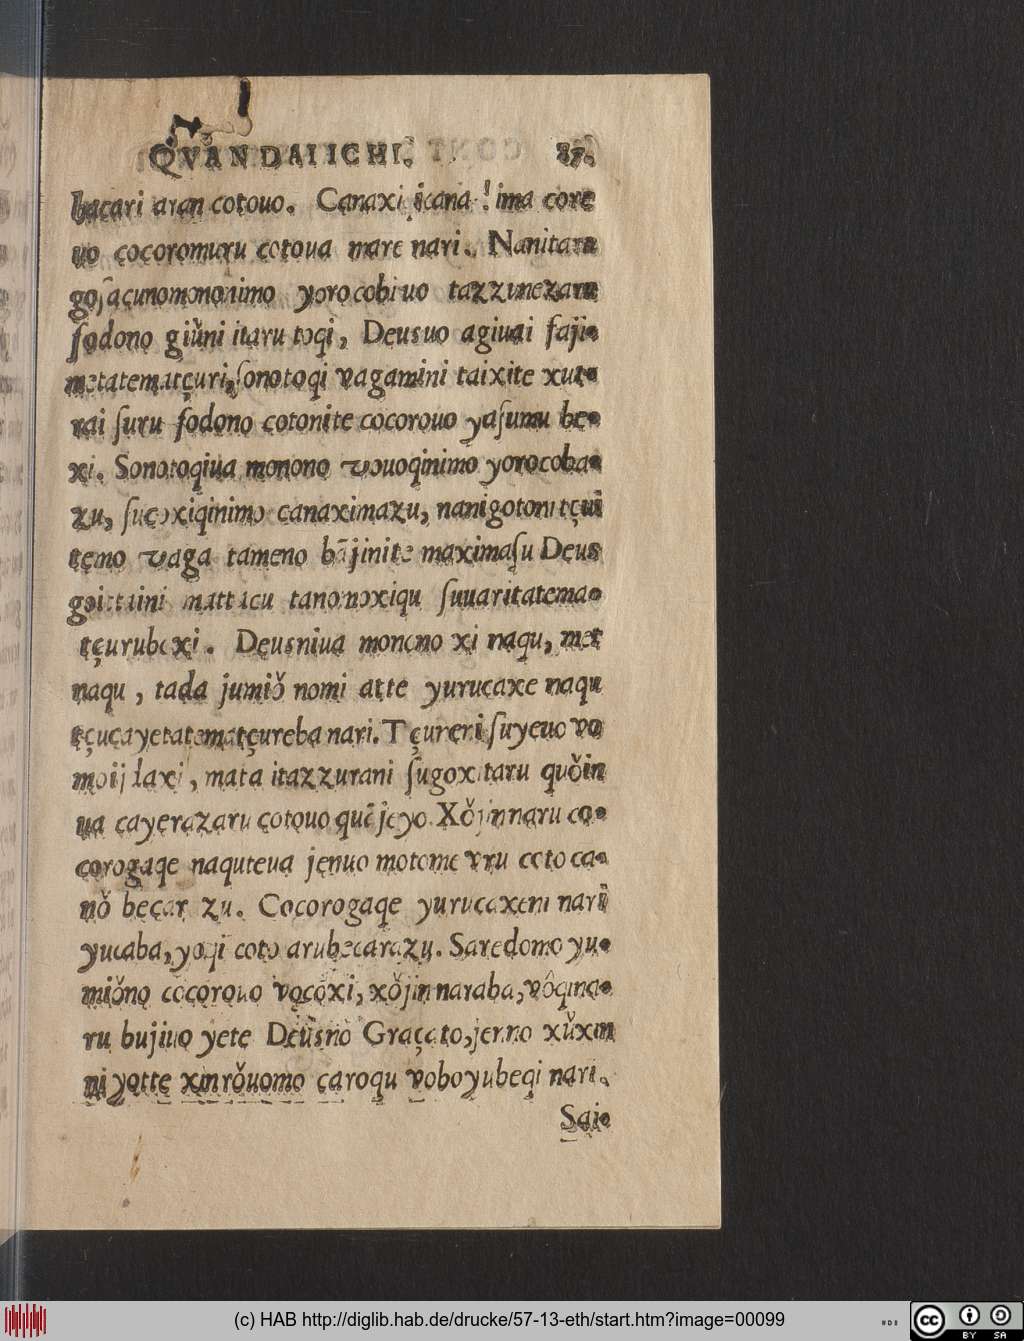 QVAN DAI ICHI. 87.
bacari aran cotouo. Canaxi icana! ima core
uo cocoromuru cotoua mare nari. Nanitaru
goſacunomononimo yorocobi uo tazzunezaru
fodono giŭni itaru toqi, Deus uo agiuai faji-
metatematçuri, ſonotoqi vagamini taixite xut-
rai ſuru fodono cotonite cocorouo yaſumu be-
xi. Sonotoqiua monono vouoqinimo yorocoba-
zu, ſucoxiqinimo canaximazu, nanigotonitçui
temo vaga tameno bājinite maximaſu Deus
goittaini mattacu tanomoxiqu ſuuaritatema-
tçurubexi. Deusniua monono xi naqu, met
naqu, tada jumiǒ nomi atte yurucaxe naqu
tçucayetatematçureba nari. Tçuneni ſuyeuo vo
moij daxi, mata itazzurani ſugoxitaru quǒin
ua cayerazaru cotouo quējeyo. Xǒjin naru co-
corogaqe naquteua jenuo motome vru coto ca-
nǒ becarazu. Cocorogaqe yurucaxeni nari
yucaba, yoqi coto arubecarazu. Saredomo yu-
miǒno cocorouo vocoxi, xǒjin naraba, vôqina-
ru bujiuo yete Deusno Graçato, jenno xŭxin
ni yotte xinrǒuomo caroqu voboyubeqi nari.
Sai-
(c) HAB http://diglib.hab.de/drucke/57-13-eth/start.htm?image=00099
HAB
cc BY SA